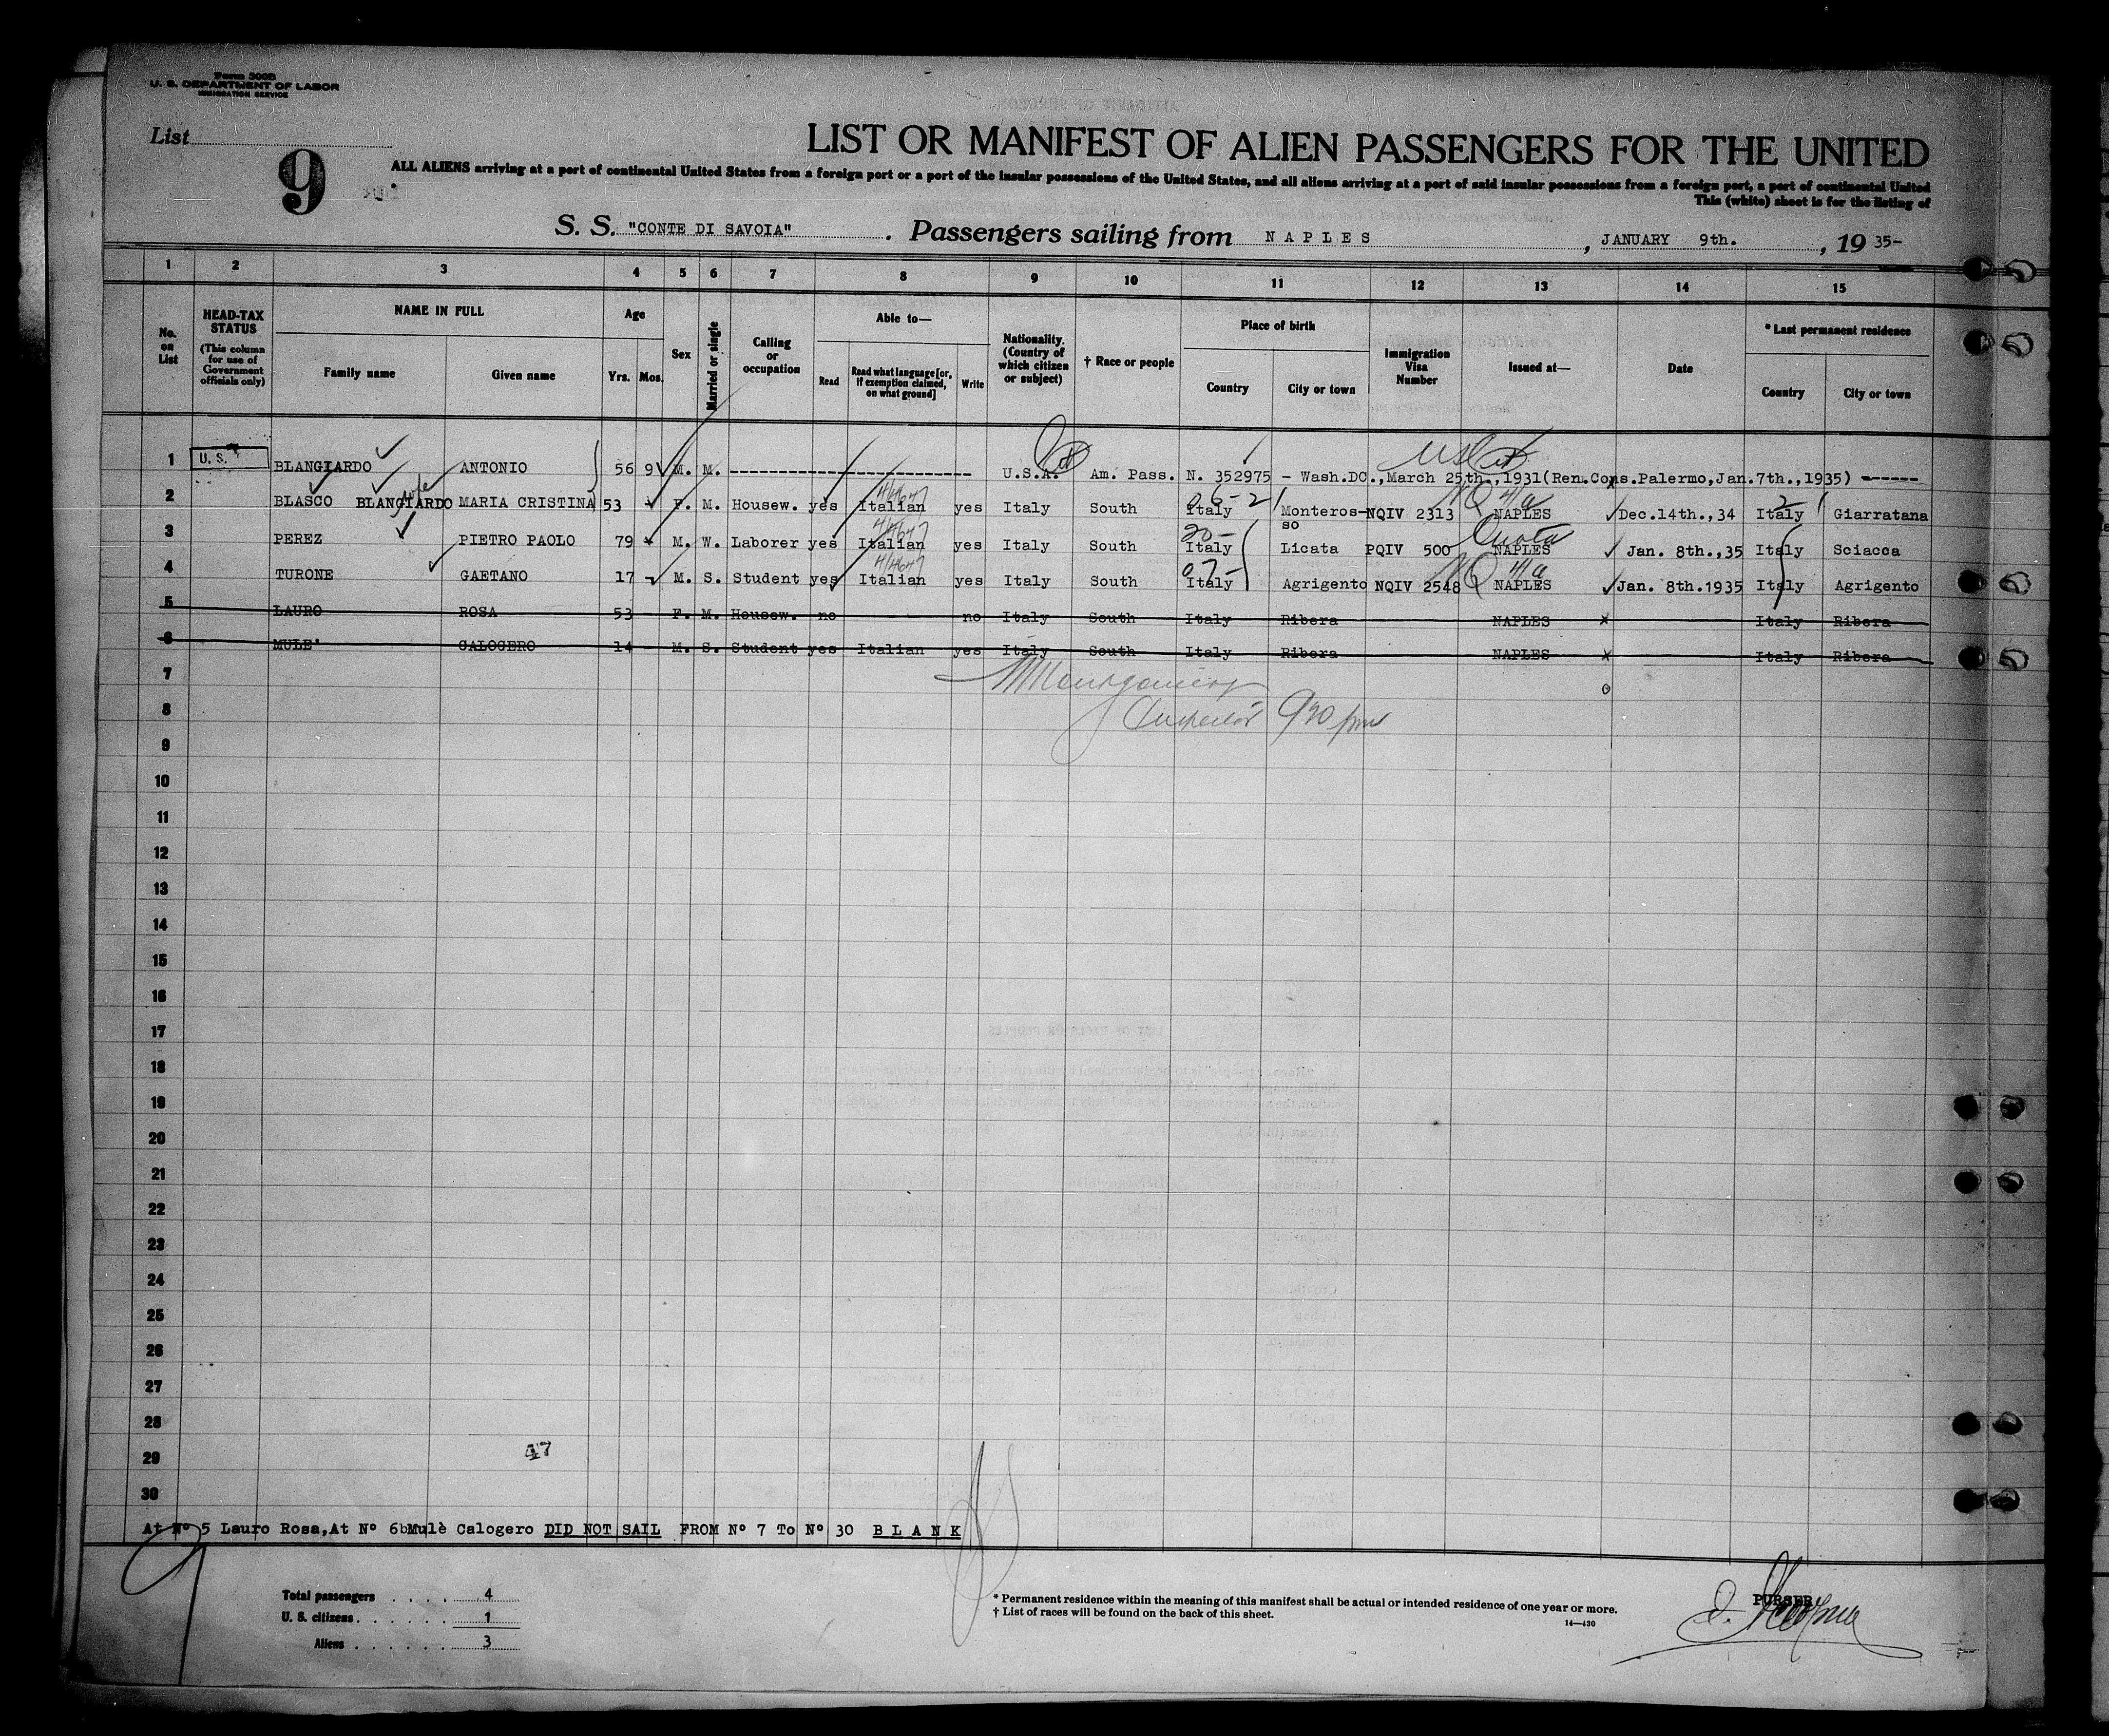 Form 500B
U. S. DEPARTMENT OF LABOR
IMMIGRATION SERVICE
List
9
LIST OR MANIFEST OF ALIEN PASSENGERS FOR THE UNITED
ALL ALIENS arriving at a port of continental United States from a foreign port or a port of the insular possessions of the United States, and all aliens arriving at a port of said insular possessions from a foreign port, a port of continental United
This (white) sheet is for the listing of
S. S. "CONTE DI SAVOIA". Passengers sailing from NAPLES, JANUARY 9th., 19 35-
1 2 3 4 5 6 7 8 9 10 11 12 13 14 15
No. on List
HEAD-TAX STATUS (This column for use of Government officials only)
NAME IN FULL
Family name Given name
Age
Yrs. Mos.
Sex
Married or single
Calling or occupation
Able to—
Read Read what language [or, if exemption claimed, on what ground] Write
Nationality. (Country of which citizen or subject)
† Race or people
Place of birth
Country City or town
Immigration Visa Number
Issued at—
Date
* Last permanent residence
Country City or town
1 U. S. BLANGIARDO ANTONIO 56 9 M. M. ---------------------- U.S.A. Am. Pass. N. 352975 - Wash.DC.,March 25th.,1931(Ren.Cons.Palermo,Jan.7th.,1935) ------
2 BLASCO BLANGIARDO MARIA CRISTINA 53 F. M. Housew. yes Italian yes Italy South Italy Monterosso NQIV 2313 NAPLES Dec.14th.,34 Italy Giarratana
3 PEREZ PIETRO PAOLO 79 M. W. Laborer yes Italian yes Italy South Italy Licata PQIV 500 Quota NAPLES Jan. 8th.,35 Italy Sciacca
4 TURONE GAETANO 17 - M. S. Student yes Italian yes Italy South Italy Agrigento NQIV 2548 NAPLES Jan. 8th.1935 Italy Agrigento
5 LAURO ROSA 53 F. M. Housew. no no Italy South Italy Ribera NAPLES Italy Ribera
6 MULE' CALOGERO 14 M. S. Student yes Italian yes Italy South Italy Ribera NAPLES Italy Ribera
7 Montgomery
8 Inspector 930 pm
9
10
11
12
13
14
15
16
17
18
19
20
21
22
23
24
25
26
27
28
29 47
30
At Nº 5 Lauro Rosa,At Nº 6 Mulè Calogero DID NOT SAIL FROM Nº 7 To Nº 30 BLANK
Total passengers . . . . 4
U. S. citizens . . . . . . 1
Aliens . . . . . . 3
* Permanent residence within the meaning of this manifest shall be actual or intended residence of one year or more.
† List of races will be found on the back of this sheet.
14—430
PURSER